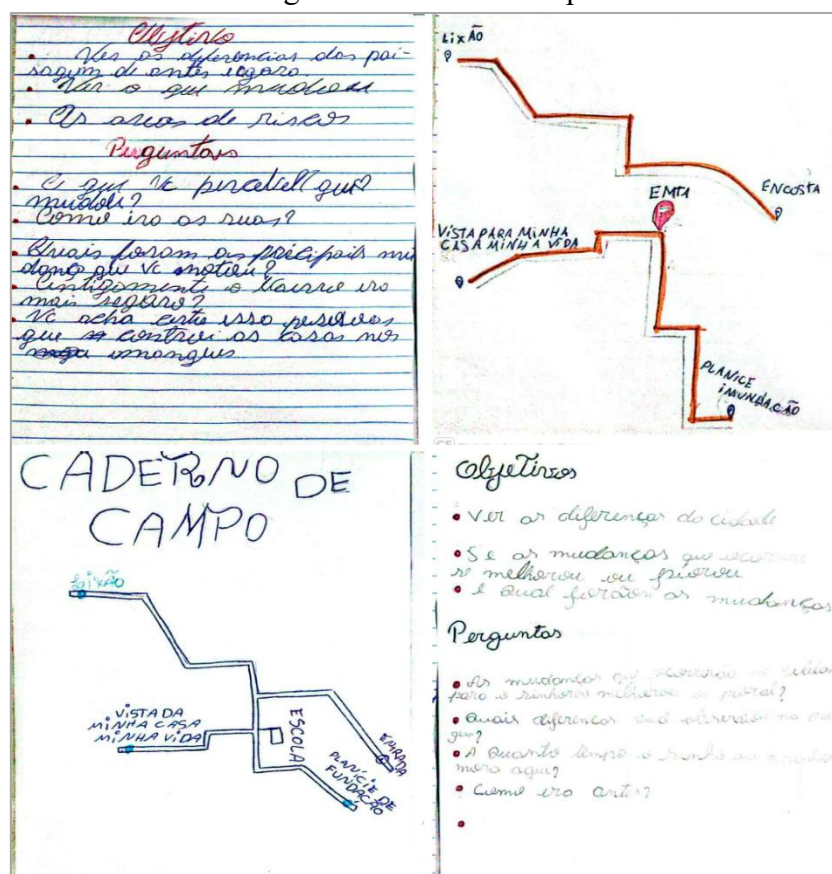 Objetivo
• Ver as diferencias das pai-
sagem de antes e agora.
• Ver o que mudou
• As areas de riscos
Perguntas
• O que vc percebeu que
mudou?
• Como era as ruas?
• Quais foram as principais mu
dança que vc notou?
• Antigamente o bairro era
mais seguro?
• Vc acha certo isso pessoas
que controi as casas nos
mangues
LIXÃO
ENCOSTA
EMTA
VISTA PARA MINHA
CASA MINHA VIDA
PLANICE
iMUNDAÇÃO
CADERNO DE
CAMPO
LiXÃO
ViSTA DA
MiNHA CASA
MiNHA ViDA
ESCOLA
PLANÍCIE DE
FUNDAÇÃO
Objetivos
• Ver as diferenças da cidade
• Se as mudanças que ocorreu
se melhorou ou piorou
• E Qual forão as mudanças
Perguntas
• As mudanças que ocorrerão na
para o senhores melhorou ou
• Quais diferenças
• A Quanto tempo o
mora aqui?
• Como era antes?
•